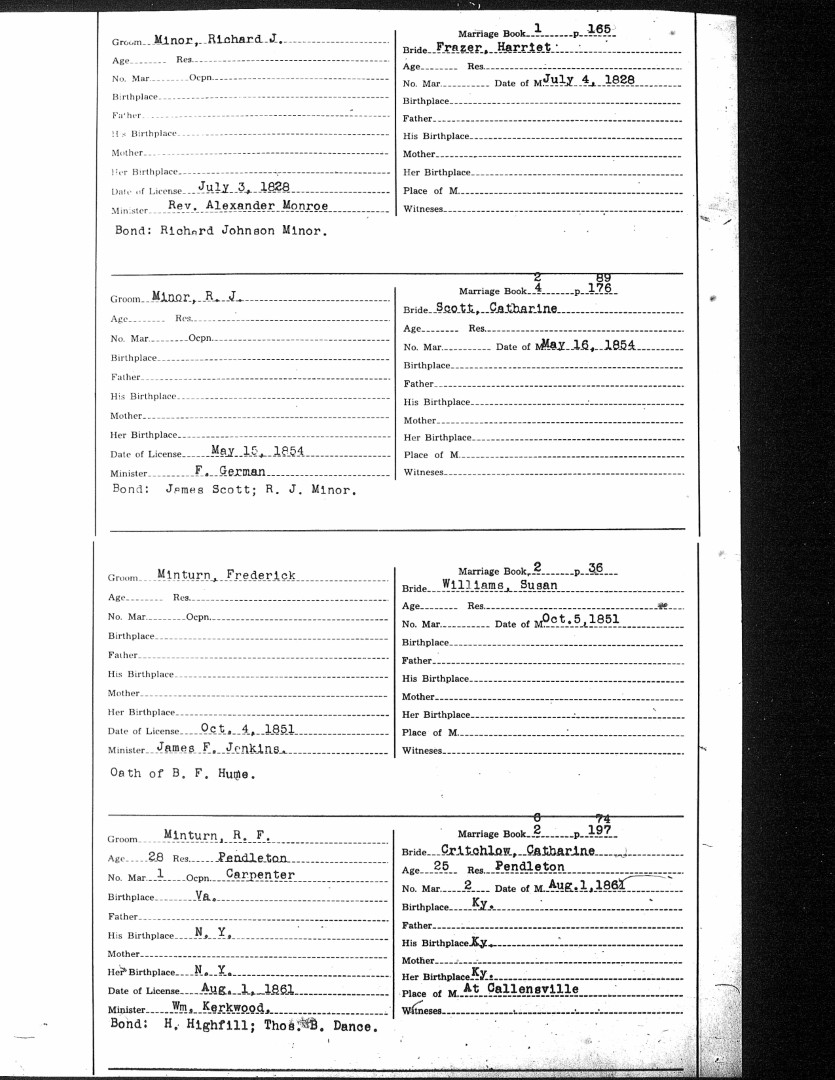 Groom Minor, Richard J.
Age Res.
No. Mar. Ocpn.
Birthplace
Father
His Birthplace
Mother
Her Birthplace
Date of License July 3, 1828
Minister Rev. Alexander Monroe
Marriage Book 1 p. 165
Bride Frazer, Harriet
Age Res.
No. Mar. Date of M. July 4, 1828
Birthplace
Father
His Birthplace
Mother
Her Birthplace
Place of M.
Witneses
Bond: Richard Johnson Minor.
Groom Minor, R. J.
Age Res.
No. Mar. Ocpn.
Birthplace
Father
His Birthplace
Mother
Her Birthplace
Date of License May 15, 1854
Minister F. German
2 89
Marriage Book 4 p. 176
Bride Scott, Catharine
Age Res.
No. Mar. Date of M. May 16, 1854
Birthplace
Father
His Birthplace
Mother
Her Birthplace
Place of M.
Witneses
Bond: James Scott; R. J. Minor.
Groom Minturn, Frederick
Age Res.
No. Mar. Ocpn.
Birthplace
Father
His Birthplace
Mother
Her Birthplace
Date of License Oct. 4, 1851
Minister James F. Jenkins.
Marriage Book 2 p. 36
Bride Williams, Susan
Age Res.
No. Mar. Date of M. Oct.5,1851
Birthplace
Father
His Birthplace
Mother
Her Birthplace
Place of M.
Witneses
Oath of B. F. Hume.
Groom Minturn, R. F.
Age 28 Res. Pendleton
No. Mar. 1 Ocpn. Carpenter
Birthplace Va.
Father
His Birthplace N. Y.
Mother
Her Birthplace N. Y.
Date of License Aug. 1, 1861
Minister Wm. Kerkwood.
6 74
Marriage Book 2 p. 197
Bride Critchlow, Catharine
Age 25 Res. Pendleton
No. Mar. 2 Date of M. Aug.1,1861
Birthplace Ky.
Father
His Birthplace Ky.
Mother
Her Birthplace Ky.
Place of M. At Callensville
Witneses
Bond: H. Highfill; Thos. B. Dance.